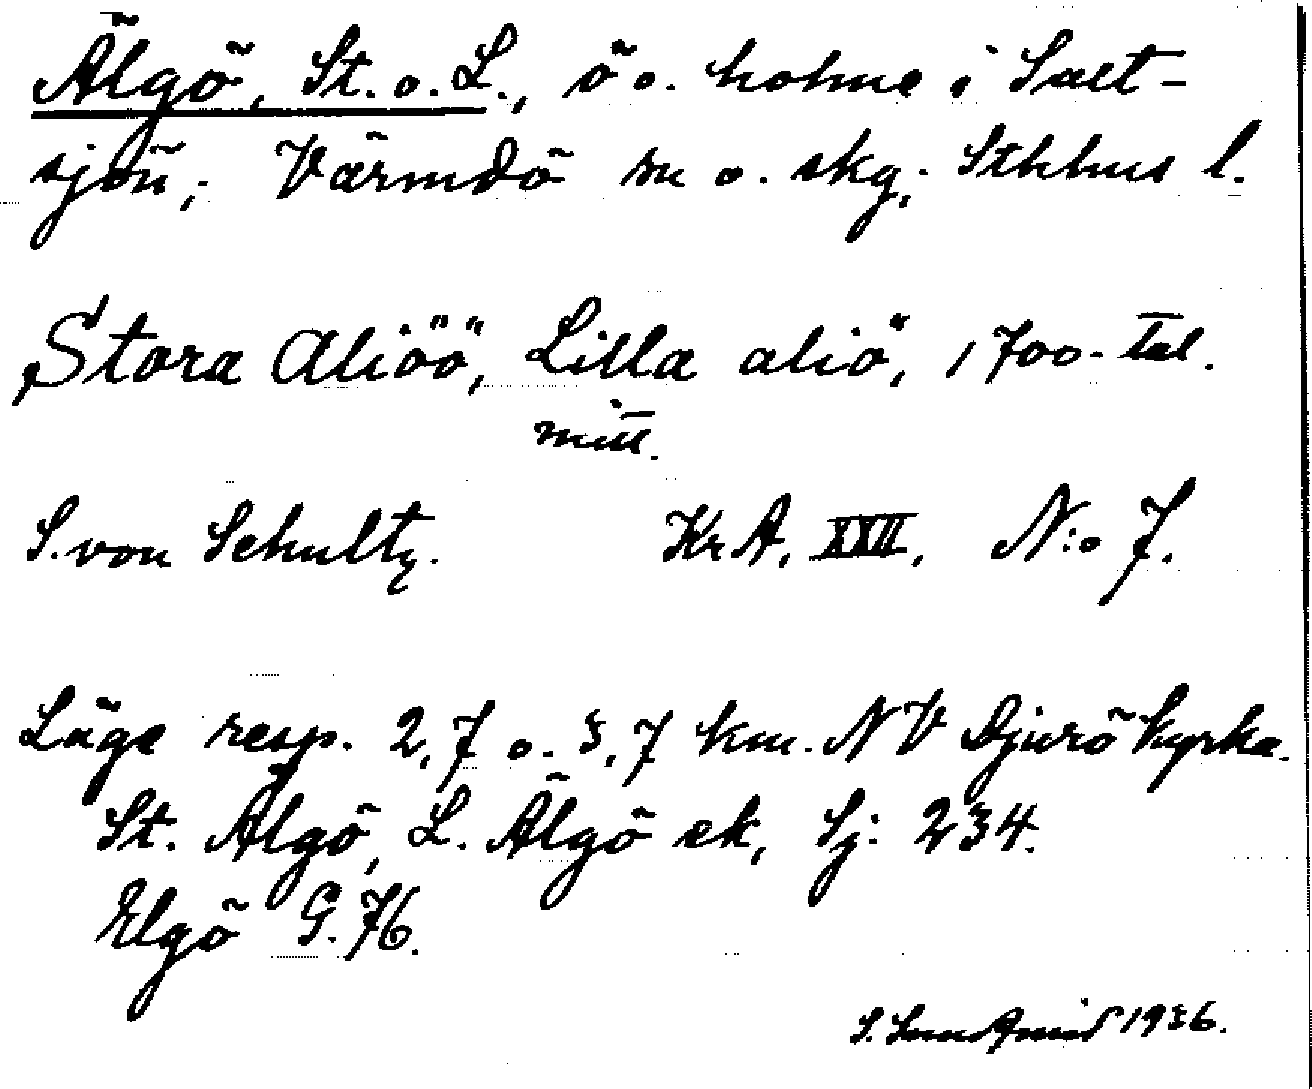 Älgö, St. o. L., ö o. holme i Salt-
sjön, Värmdö sn o. skg, Sthlms l.
Stora Aliöö, Lilla aliö, 1700-tal.
mitt.
S. von Schultz. Kr A, XXII, N:o 7.
Läge resp. 2,7 o. 3,7 km. NV Djurö kyrka.
St. Älgö, L. Älgö ek, Sj: 234.
Elgö G. 76.
S. 1936.